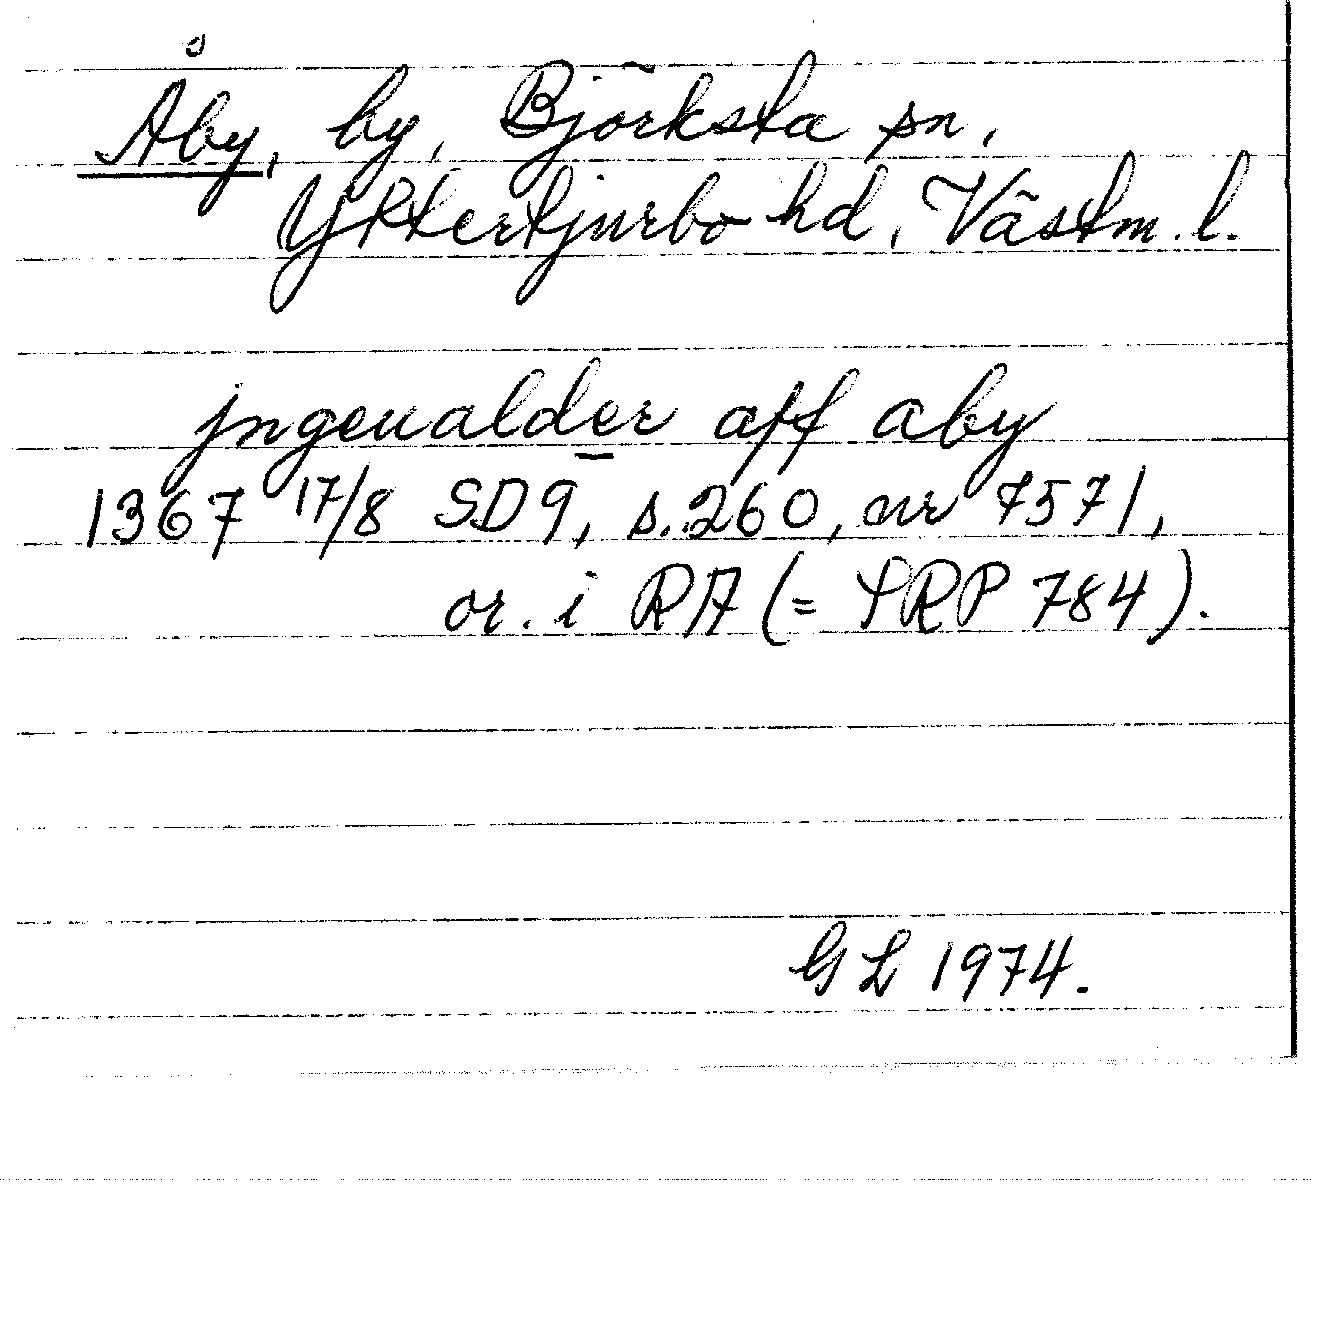 Åby, by, Björksta sn,
Yttertjurbo hd, Västm. l.
jngeualder aff aby
1367 17/8 SD 9, s. 260, nr 7571,
or. i RA (= SRP 784).
GL 1974.